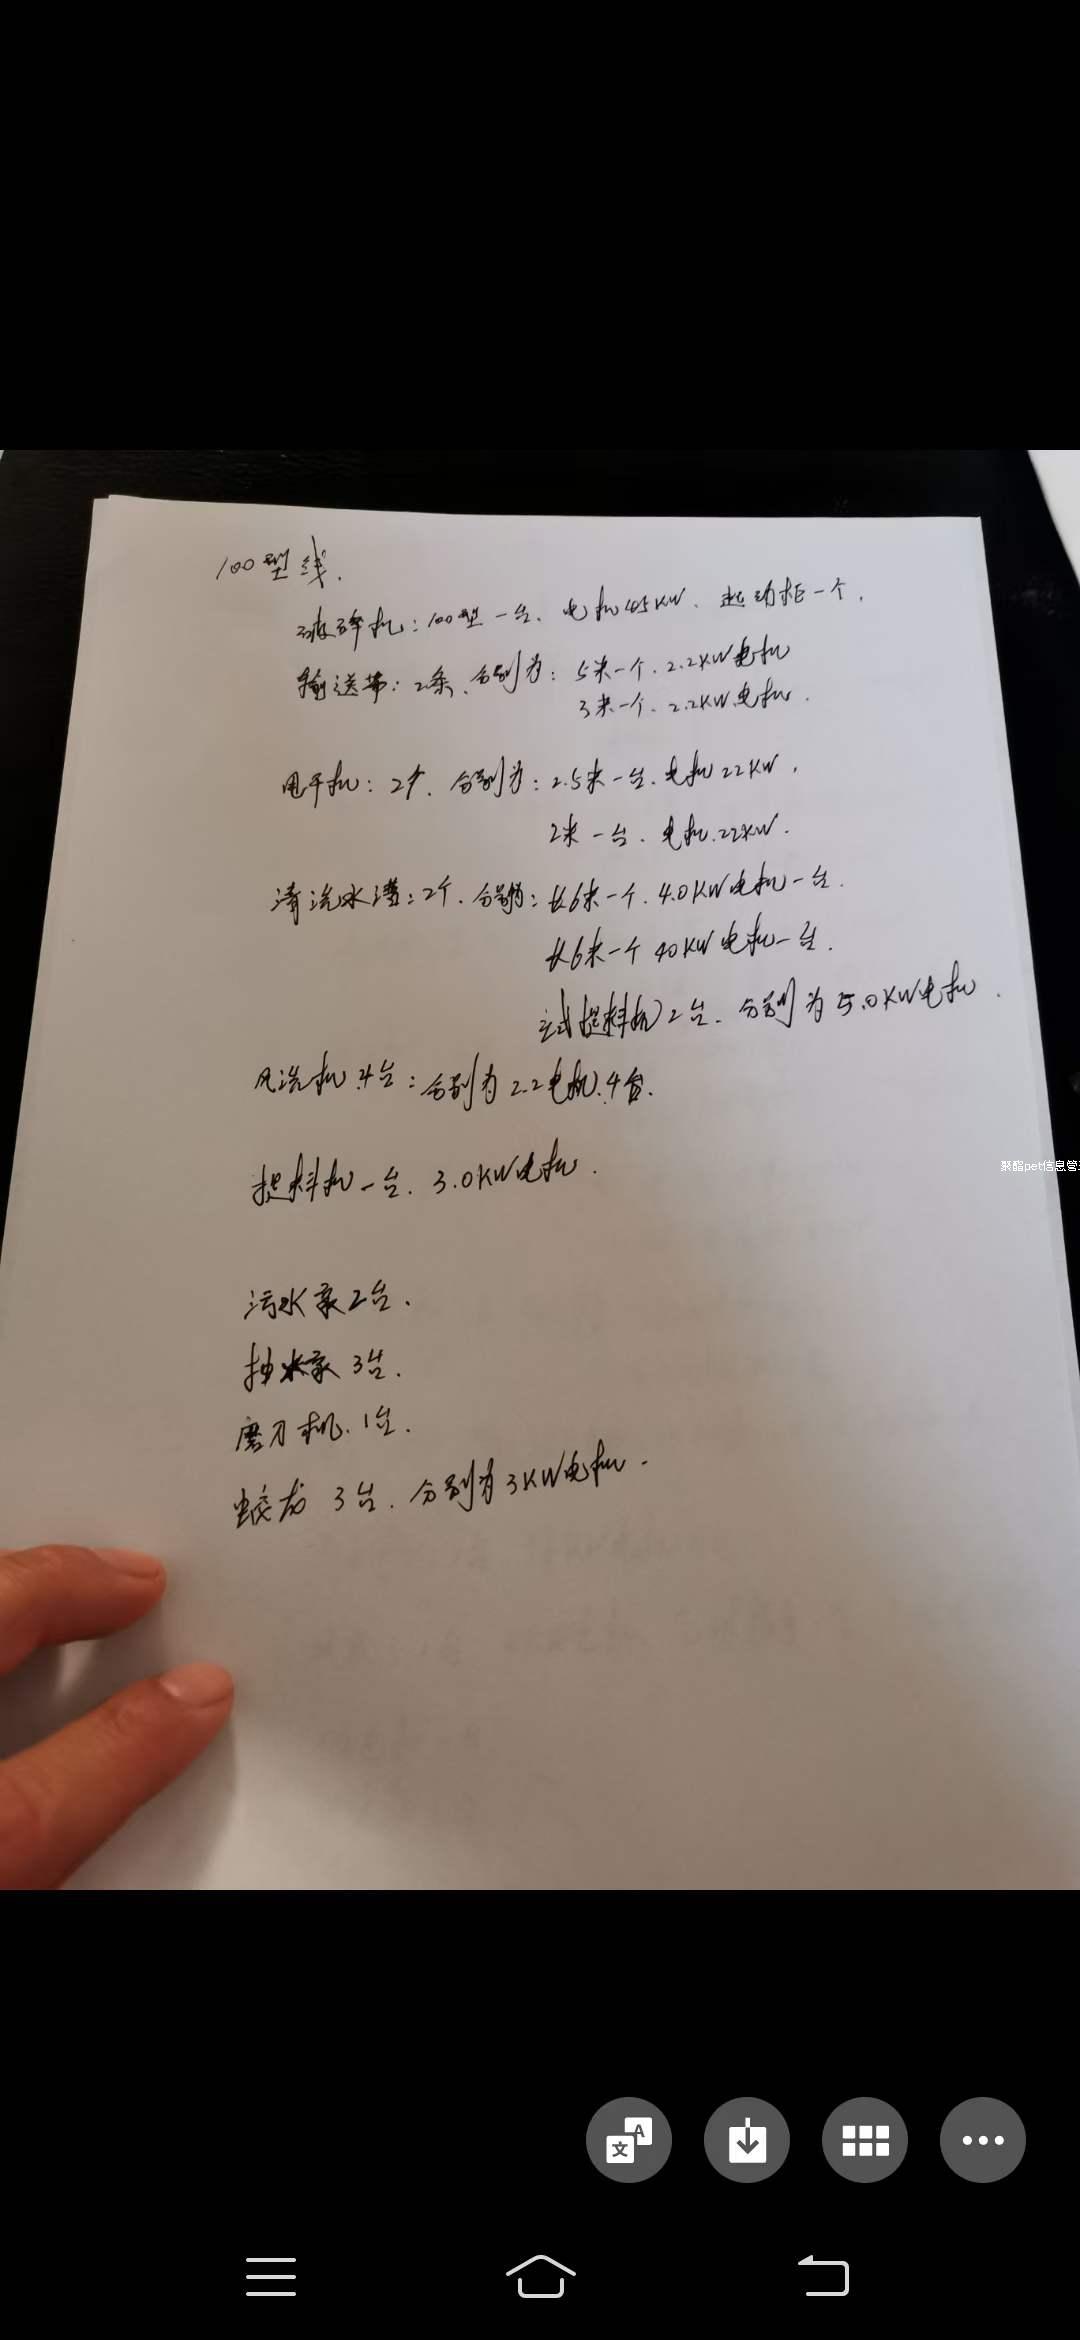 100型线.
破碎机:100型一台、电机45KW、起动柜一个,
输送带:2条、分别为:5米一个.2.2KW电机
3米一个.2.2KW电机.
甩干机:2个、分别为:2.5米一台.电机22KW,
2米一台.电机.22KW.
清洗水漕:2个.分别为:长6米一个.4.0KW电机一台.
长6米一个 40KW电机一台.
立式提料机2台.分别为5.0KW电机.
风洗机.4台:分别为2.2电机.4台.
提料机一台.3.0KW电机.
聚酯pet信息管
污水泵2台.
抽水泵3台.
磨刀机.1台.
蛟龙 3台.分别为3KW电机.